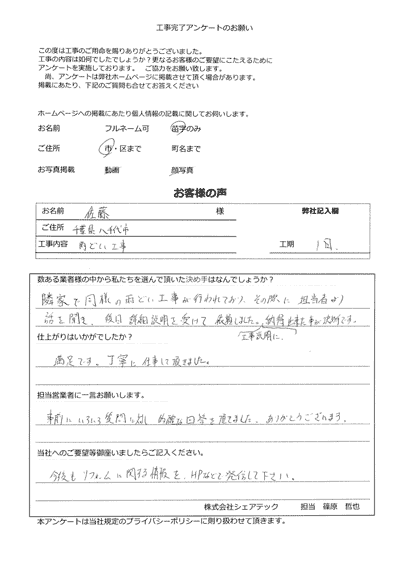 工事完了アンケートのお願い
この度は工事のご用命を賜りありがとうございました。
工事の内容は如何でしたでしょうか？更なるお客様のご要望にこたえるために
アンケートを実施しております。　ご協力をお願い致します。
尚、アンケートは弊社ホームページに掲載させて頂く場合があります。
掲載にあたり、下記のご質問も合せてお答えください
ホームページへの掲載にあたり個人情報の記載に関してお伺いします。
お名前　フルネーム可　苗字のみ
ご住所　市・区まで　町名まで
お写真掲載　動画　顔写真
お客様の声
お名前　佐藤　様　弊社記入欄
ご住所　千葉県八千代市
工事内容　雨どい工事　工期　1日
数ある業者様の中から私たちを選んで頂いた決め手はなんでしょうか？
隣家で同様の雨どい工事が行われており、その際に担当者より
話を聞き、後日詳細説明を受けて依頼しました。納得出来た事が決断です。
工事説明に、
仕上がりはいかがでしたか？
満足です。丁寧に仕事して頂きました。
担当営業者に一言お願いします。
事前にいろいろ質問に対し的確な回答を頂きました。ありがとうございます。
当社へのご要望等御座いましたらご記入ください。
今後もリフォームに関する情報を、HPなどで発信して下さい。
株式会社シェアテック　担当　篠原　哲也
本アンケートは当社規定のプライバシーポリシーに則り扱わせて頂きます。